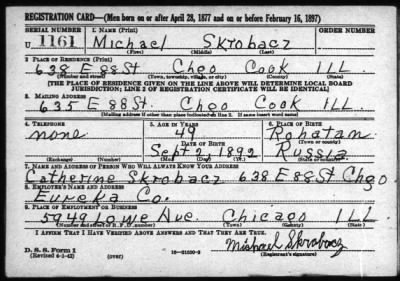 REGISTRATION CARD—(Men born on or after April 28, 1877 and on or before February 16, 1897)
SERIAL NUMBER 1. NAME (Print) ORDER NUMBER
U 1161 Michael Skrobacz
(First) (Middle) (Last)
2. PLACE OF RESIDENCE (Print)
638 E 88 St. Chgo Cook ILL.
(Number and street) (Town, township, village, or city) (County) (State)
[THE PLACE OF RESIDENCE GIVEN ON THE LINE ABOVE WILL DETERMINE LOCAL BOARD
JURISDICTION; LINE 2 OF REGISTRATION CERTIFICATE WILL BE IDENTICAL]
3. MAILING ADDRESS
635 E 88 St. Chgo Cook ILL.
(Mailing address if other than place indicated on line 2. If same insert word same)
4. TELEPHONE 5. AGE IN YEARS 6. PLACE OF BIRTH
none 49 Rohatam
DATE OF BIRTH (Town or county)
Sept 2 1892 Russia
(Exchange) (Number) (Mo.) (Day) (Yr.) (State or country)
7. NAME AND ADDRESS OF PERSON WHO WILL ALWAYS KNOW YOUR ADDRESS
Catherine Skrobacz 638 E 88 St Chgo
8. EMPLOYER'S NAME AND ADDRESS
Eureka Co.
9. PLACE OF EMPLOYMENT OR BUSINESS
5949 Lowe Ave. Chicago ILL
(Number and street or R. F. D. number) (Town) (County) (State)
I AFFIRM THAT I HAVE VERIFIED ABOVE ANSWERS AND THAT THEY ARE TRUE.
Michael Skrobacz
D. S. S. Form 1
(Revised 4-1-42) (over) (Registrant's signature)